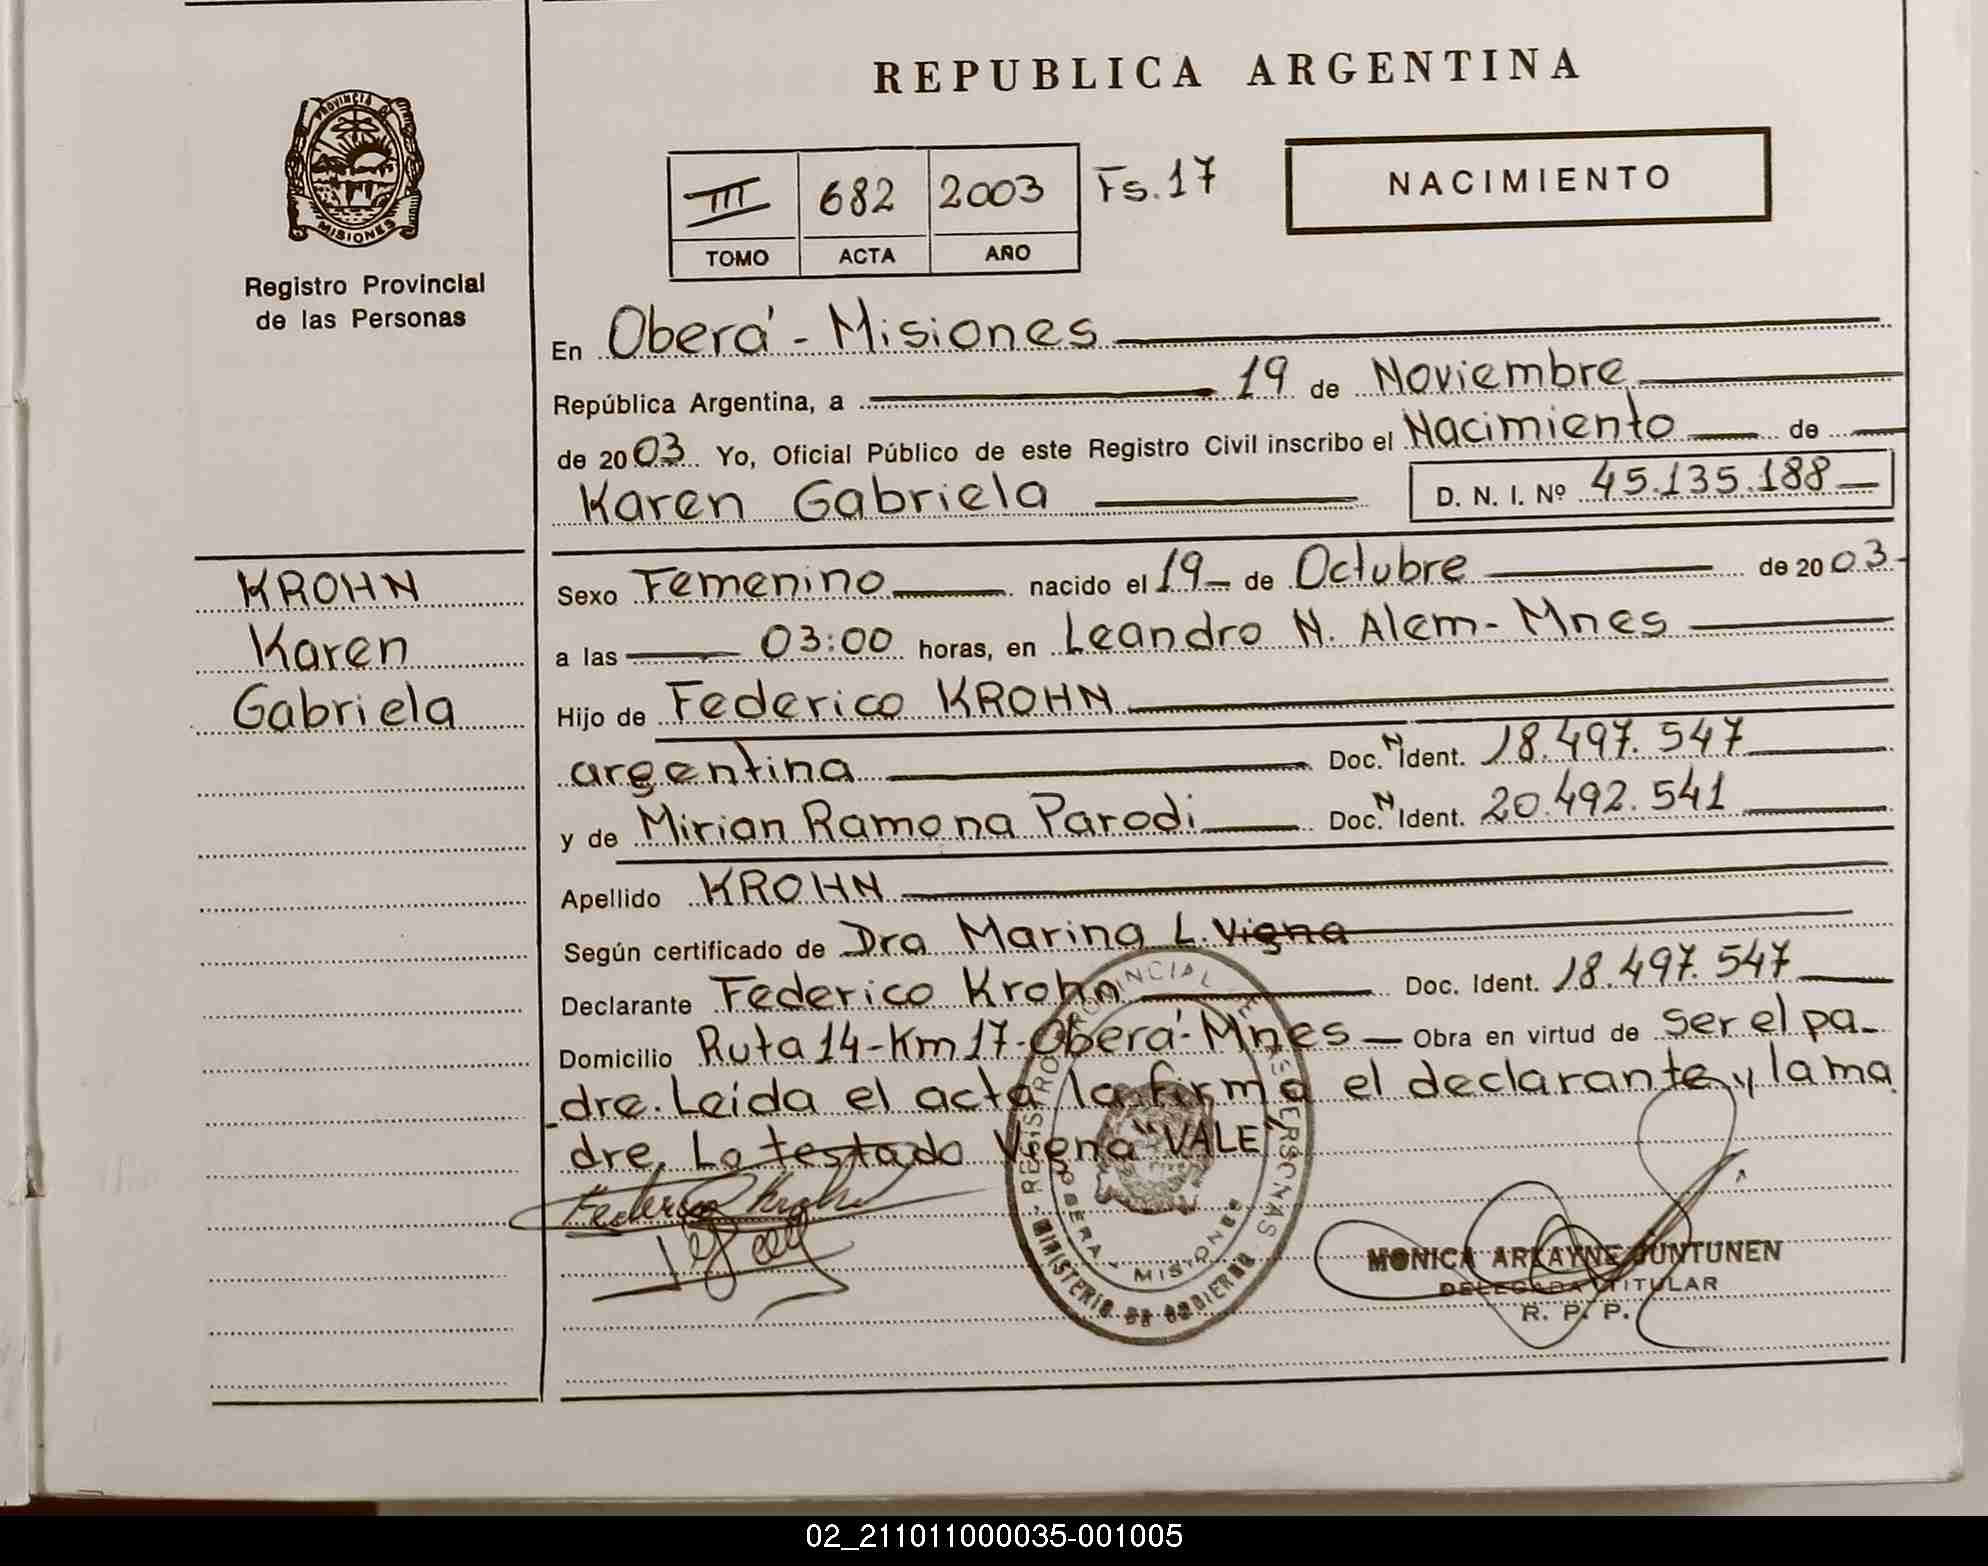 REPUBLICA ARGENTINA
PROVINCIA D
MISIONES
Registro Provincial
de las Personas
III 682 2003 Fs.17
TOMO ACTA AÑO
NACIMIENTO
En Oberá - Misiones
República Argentina, a 19 de Noviembre
de 2003 Yo, Oficial Público de este Registro Civil inscribo el Nacimiento de
Karen Gabriela D. N. I. Nº 45.135.188
KROHN
Karen
Gabriela
Sexo Femenino nacido el 19 de Octubre de 2003
a las 03:00 horas, en Leandro N. Alem - Mnes
Hijo de Federico KROHN
argentina Doc. N Ident. 18.497.547
y de Mirian Ramona Parodi Doc. N Ident. 20.492.541
Apellido KROHN
Según certificado de Dra Marina L. Vigna
Declarante Federico Krohn Doc. Ident. 18.497.547
Domicilio Ruta 14-Km 17-Oberá-Mnes Obra en virtud de ser el pa-
dre. Leída el acta la firma el declarante y la ma
dre. Lo testado Vigna "VALE"
Federico Krohn
REGISTRO PROVINCIAL DE LAS PERSONAS
OBERA - MISIONES
MINISTERIO DE GOBIERNO
MONICA ARLAYNE JUNTUNEN
DELEGADA TITULAR
R. P. P.
02_211011000035-001005